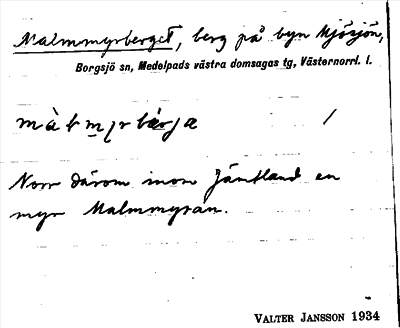 Malmmyrberget, berg på byn Mjösjön,
Borgsjö sn, Medelpads västra domsagas tg, Västernorrl. l.
/
Norr därom inom Jämtland en
myr Malmmyran.
VALTER JANSSON 1934